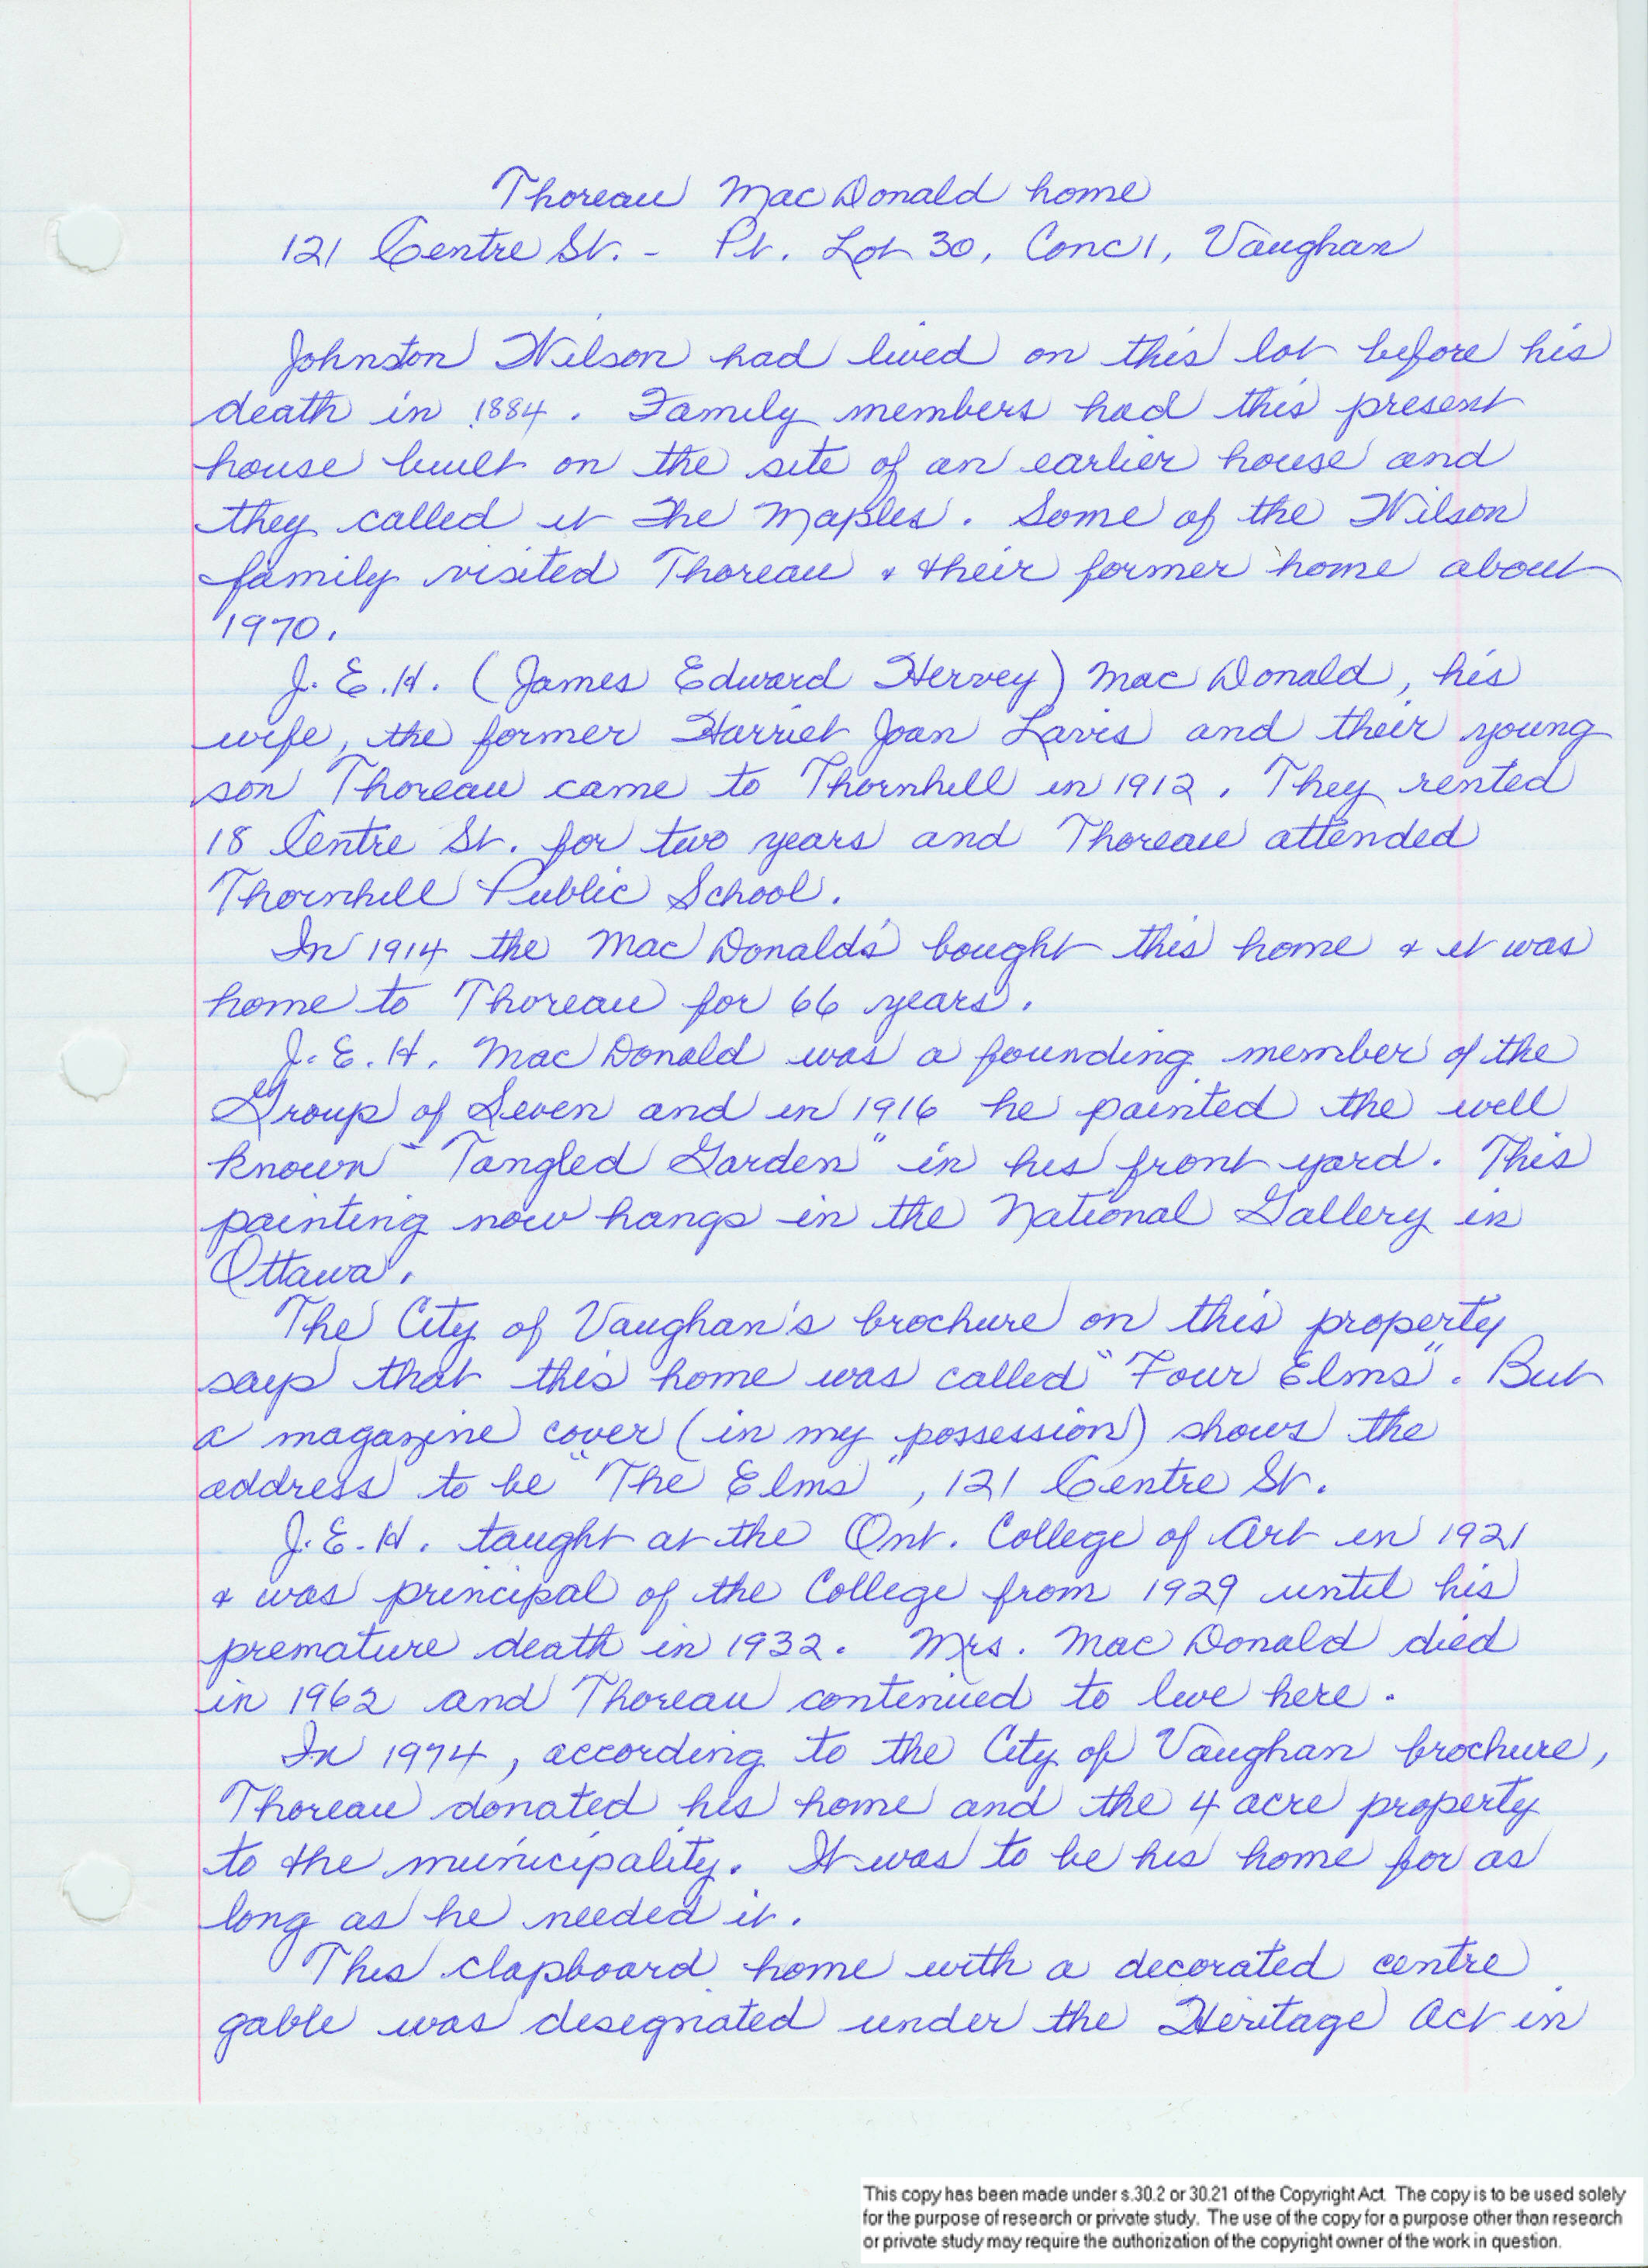 Thoreau MacDonald home
121 Centre St. - Pt. Lot 30, Conc 1, Vaughan
Johnston Wilson had lived on this lot before his
death in 1884. Family members had this present
house built on the site of an earlier house and
they called it The Maples. Some of the Wilson
family visited Thoreau & their former home about
1970.
J. E. H. (James Edward Hervey) MacDonald, his
wife, the former Harriet Joan Lavis and their young
son Thoreau came to Thornhill in 1912. They rented
18 Centre St. for two years and Thoreau attended
Thornhill Public School.
In 1914 the MacDonald's bought this home & it was
home to Thoreau for 66 years.
J. E. H. MacDonald was a founding member of the
Group of Seven and in 1916 he painted the well
known "Tangled Garden" in his front yard. This
painting now hangs in the National Gallery in
Ottawa.
The City of Vaughan's brochure on this property
says that this home was called "Four Elms". But
a magazine cover (in my possession) shows the
address to be "The Elms", 121 Centre St.
J. E. H. taught at the Ont. College of Art in 1921
& was principal of the College from 1929 until his
premature death in 1932. Mrs. MacDonald died
in 1962 and Thoreau continued to live here.
In 1974, according to the City of Vaughan brochure,
Thoreau donated his home and the 4 acre property
to the municipality. It was to be his home for as
long as he needed it.
This clapboard home with a decorated centre
gable was designated under the Heritage Act in
This copy has been made under s.30.2 or 30.21 of the Copyright Act. The copy is to be used solely
for the purpose of research or private study. The use of the copy for a purpose other than research
or private study may require the authorization of the copyright owner of the work in question.